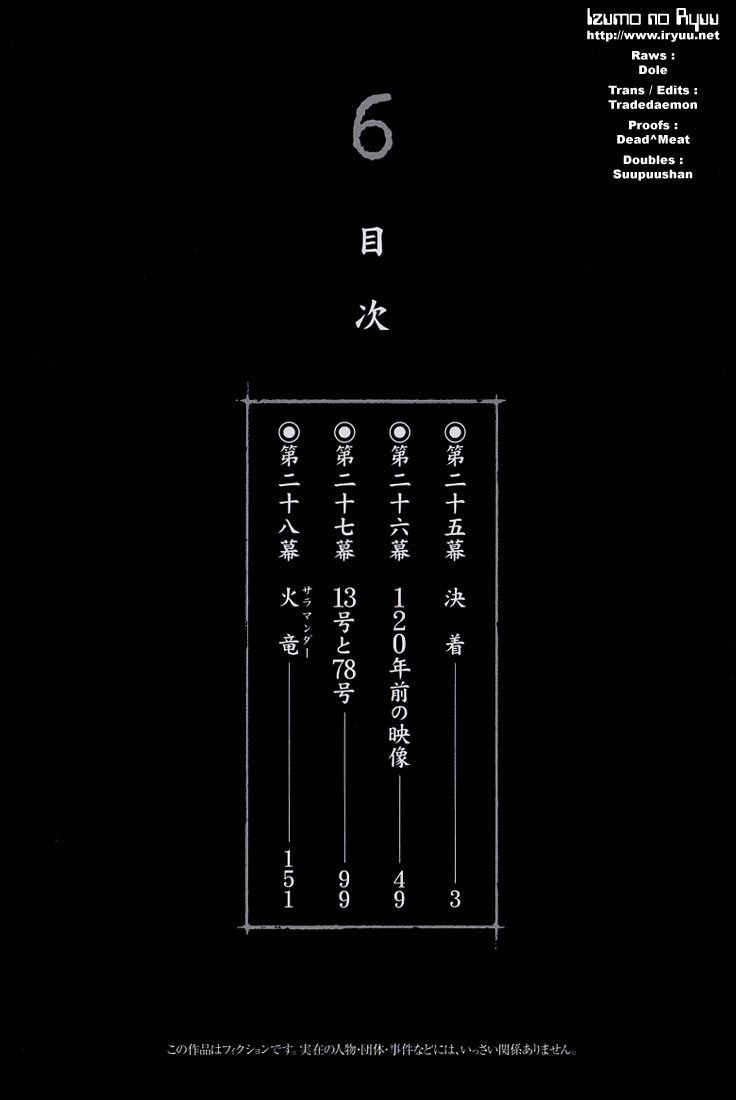 Izumo no Ryuu
http://www.iryuu.net
Raws :
Dole
Trans / Edits :
Tradedaemon
Proofs :
Dead^Meat
Doubles :
Suupuushan
6
目次
第二十五幕 決着 3
第二十六幕 120年前の映像 49
第二十七幕 13号と78号 99
第二十八幕 火竜 151
サラマンダー
この作品はフィクションです。実在の人物・団体・事件などには、いっさい関係ありません。